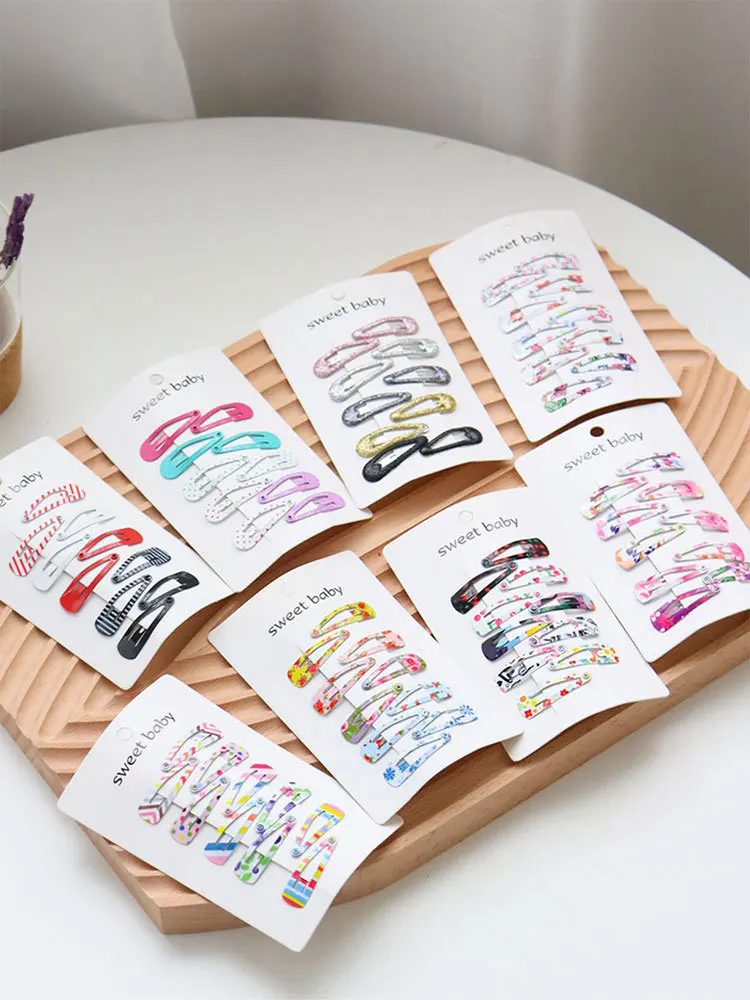 sweet baby
sweet baby
sweet baby
sweet baby
sweet baby
sweet baby
sweet baby
sweet baby
sweet baby